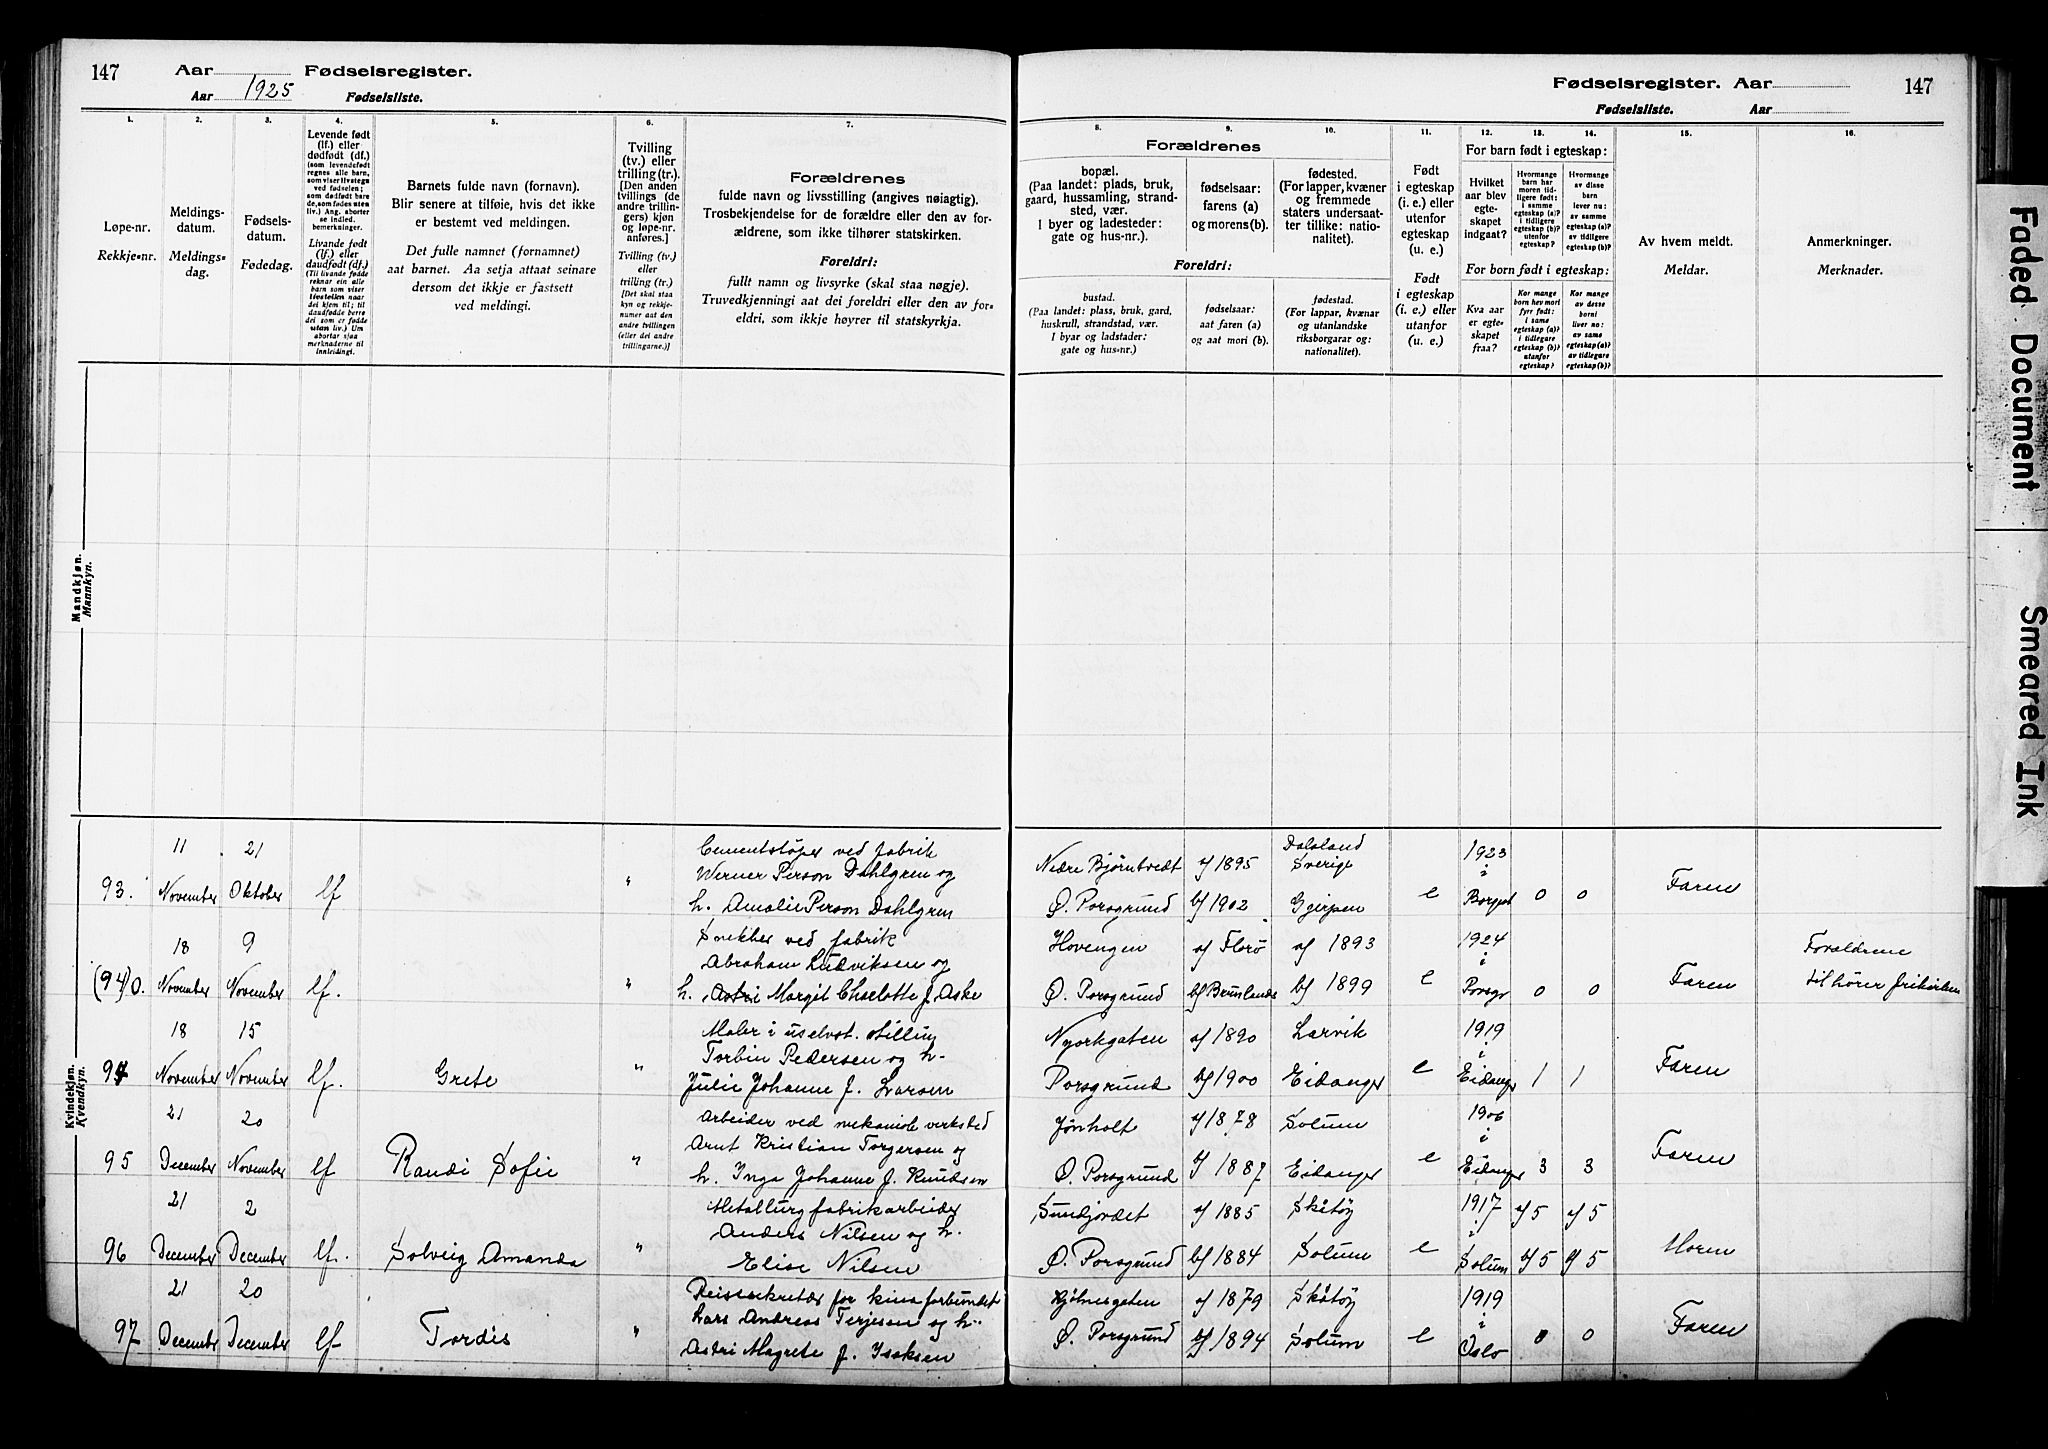 147 Aar 1925 Fødselsregister.
Aar Fødselsliste.
Fødselsregister. Aar 147
Fødselsliste. Aar
1. 2. 3. 4. 5. 6. 7. 8. 9. 10. 11. 12. 13. 14. 15. 16.
Løpe-nr.
Rekkje-nr.
Meldings-
datum.
Meldings-
dag.
Fødsels-
datum.
Fødedag.
Levende født
(lf.) eller
dødfødt (df.)
Livande født
(lf.) eller
daudfødt (df.)
Barnets fulde navn (fornavn).
Blir senere at tilføie, hvis det ikke
er bestemt ved meldingen.
Det fulle namnet (fornamnet)
aat barnet. Aa setja attaat seinare
dersom det ikkje er fastsett
ved meldingi.
Tvilling
(tv.) eller
trilling (tr.).
[Den anden
tvillings (de
andre trillin-
gers) kjøn
og løpe-nr.
anføres.]
Tvilling (tv.)
eller
trilling (tr.)
[Det skal staa
kyn og rekkje-
numer aat den
andre tvillingen
(eller dei andre
trillingarne.)]
Forældrenes
fulde navn og livsstilling (angives nøiagtig).
Trosbekjendelse for de forældre eller den av for-
ældrene, som ikke tilhører statskirken.
Foreldri:
fullt namn og livsyrke (skal staa nøgje).
Truvedkjenningi aat dei foreldri eller den av for-
eldri, som ikkje høyrer til statskyrkja.
Forældrenes
bopæl.
(Paa landet: plads, bruk,
gaard, hussamling, strand-
sted, vær.
I byer og ladesteder:
gate og hus-nr.).
fødselsaar:
farens (a)
og morens (b).
fødested.
(For lapper, kvæner
og fremmede
staters undersaat-
ter tillike: natio-
nalitet).
Foreldri:
bustad.
(Paa landet: plass, bruk, gard,
huskrull, strandstad, vær.
I byar og ladstader:
gate og hus-nr.)
fødselsaar:
aat faren (a)
og aat mori (b).
fødestad.
(For lappar, kvænar
og utanlandske
riksborgarar og:
nationalitet).
Født
i egteskap
(i. e.) eller
utenfor
egteskap
(u. e.)
Født
i egteskap
(i. e.) eller
utanfor
(u. e.)
For barn født i egteskap:
Hvilket
aar blev
egte-
skapet
indgaat?
For born født i egteskap:
Kva aar
er egte-
skapet
fraa?
Av hvem meldt.
Meldar.
Anmerkninger.
Merknader.
Mandkjøn.
Mannkyn.
Kvindekjøn.
Kvendkyn.
11 21 Cementstøper ved fabrik Dalsland 1923
Werner Person Dahlgren og Nedre Bjørntvedt af 1895 Sverige i
93. November Oktober lf " h. Amalie Person Dahlgren Ø. Porsgrund bf 1902 Gjerpen e Borgest 0 0 Faren
18 9 Snekker ved fabrik Hovengen af Florø af 1893 1924 Forældrene
Abraham Ludviksen og i
(94)0. November November lf. " h. Astri Margit Charlotte f. Aske Ø. Porsgrund bf Brunlanes bf 1899 e Porsgr 0 0 Faren tilhører frikirken
18 15 Maler i uselvst. stilling Nyorkgaten af 1890 Larvik 1919
Torbin Pedersen og h. i
94 November November lf. Grete " Julie Johanne f. Larsen Porsgrund bf 1900 Eidanger e Eidanger 1 1 Faren
21 20 Arbeider ved mekanisk verksted Jønholt af 1878 Solum 1906
Arnt Kristian Torgersen og i
95 December November lf Randi Sofie " h. Inga Johanne f. Knudsen Ø. Porsgrund bf 1887 Eidanger e Eidanger 3 3 Faren
21 2 Metallurg fabrikarbeider Sundjordet af 1885 Skåtøy 1917 af 5 af 5
Anders Nilsen og h. i
96 December December lf. Solveig Amanda " Elise Nilsen Ø. Porsgrund bf 1884 Solum e Solum bf 5 bf 5 Moren
21 20 Reisesekretær for kinaforbundet Hjølnesgaten af 1879 Skåtøy 1919
Lars Andreas Terjesen og h. i
97 December December lf Tordis " Astri Magrete f. Isaksen Ø. Porsgrund bf 1894 Solum e Oslo 0 0 Faren
Faded Document
Smeared Ink